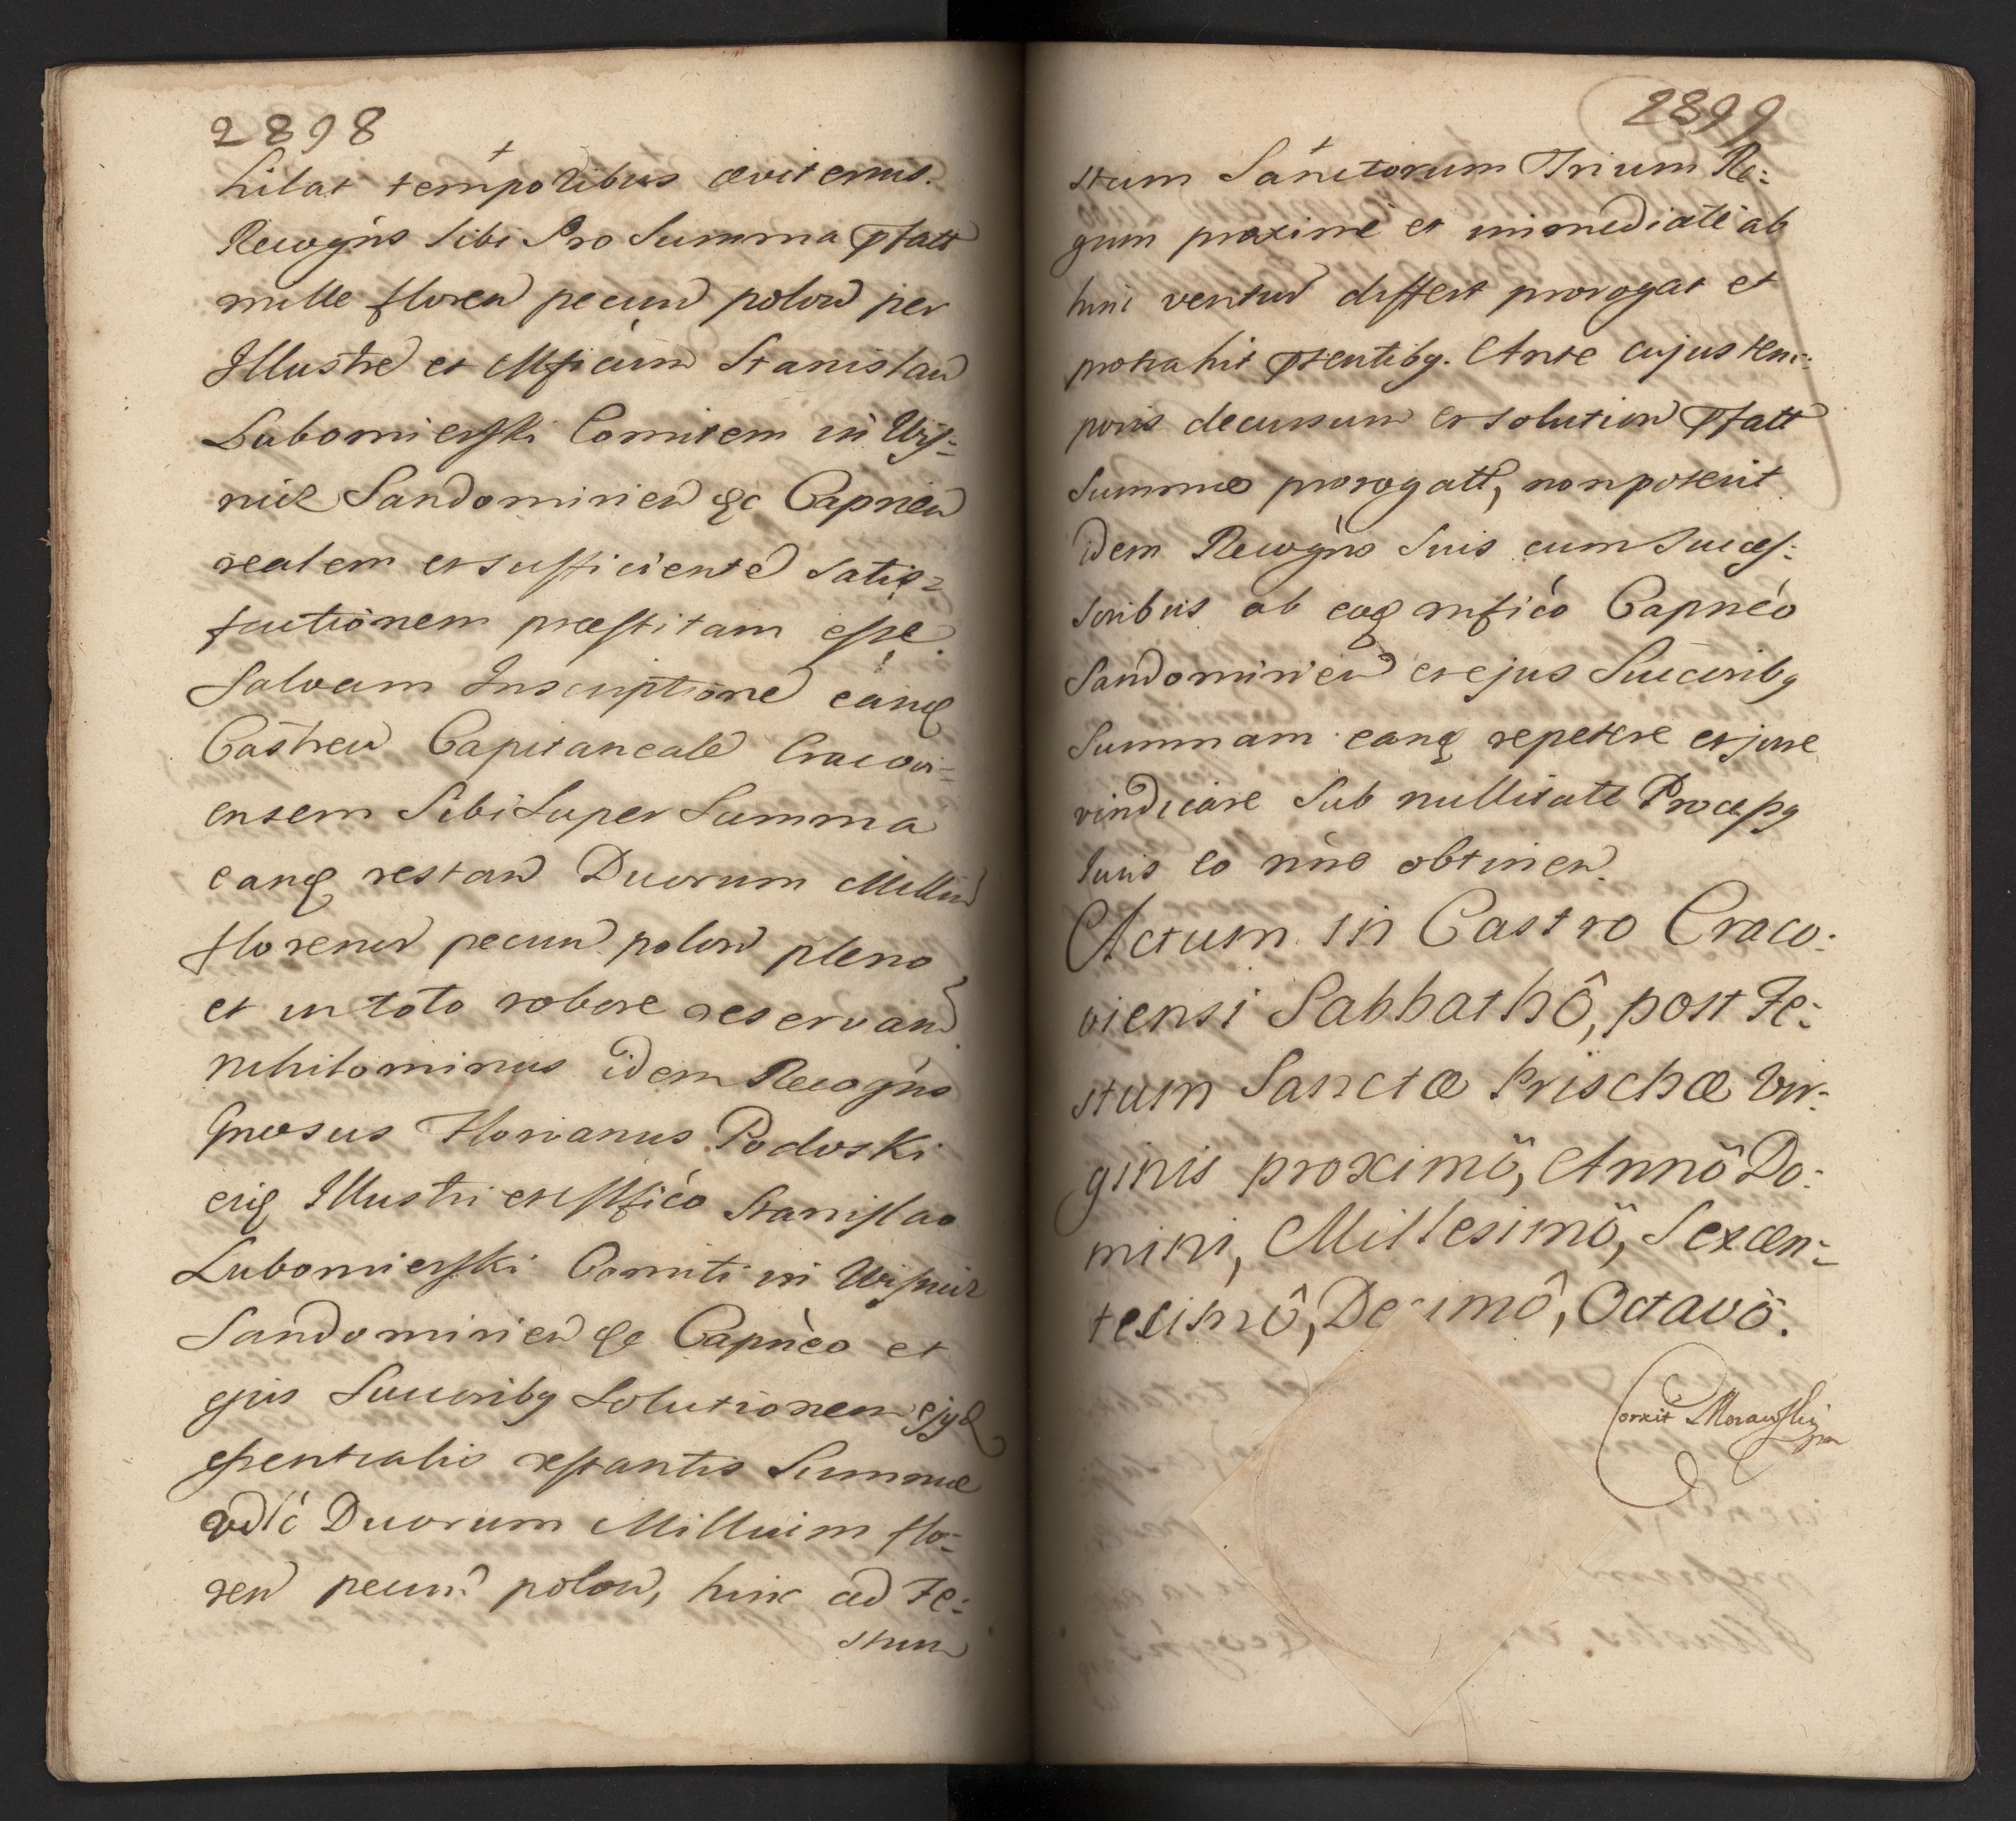 2898
hilat temporibus æviternis.
Recogn̄s Sibi Pro Summa pfatt
mille floren pecun polon per
Illustre et Mficum Stanislau
Lubomierski Comitem in Wiś=
nicz Sandomirien &c Capneu
realem et sufficiente satis=
factionem præstitam esse.
Salvam Inscriptione eanq
Castren Capitaneale Cracovi=
ensem Sibi Super Summa
eanq restan Duorum Milliu
florenor pecun polon pleno
et in toto robore reservan.
nihilominus idem Recogn̄s
Gnrosus Florianus Podoski
eiq Illustri et Mfico Stanislao
Lubomierski Comiti in Wisnicz
Sandomirien &c Capneo et
ejus Succoribq Solutionem ejsq
essentialis restantis Summæ
vdlc Duorum Millium flo=
ren pecun polon, hinc ad Fe=
stum
2899
stum Sanctorum Trium Re=
gum proxime et immediate ab
hinc ventur differt prorogat et
protrahit pntentibq. Ante cujus tem=
poris decursum et solution pfatt
Summæ prorogatt, non poterit
idem Recogn̄s Suis cum Succes=
soribus ab eoq mfico Capneo
Sandomirien et ejus Succoribq
Summam eanq repetere et jure
vindicare Sub nullitate Processq
Juris eo nñe obtinen.
Actum in Castro Craco=
viensi Sabbathô, post Fe=
stum Sanctæ Prischæ Vir=
ginis proximô, Annô Do=
mini, Millesimô, Sexcen=
tesimô, Decimô, Octavô.
Correxit Morawski
mp